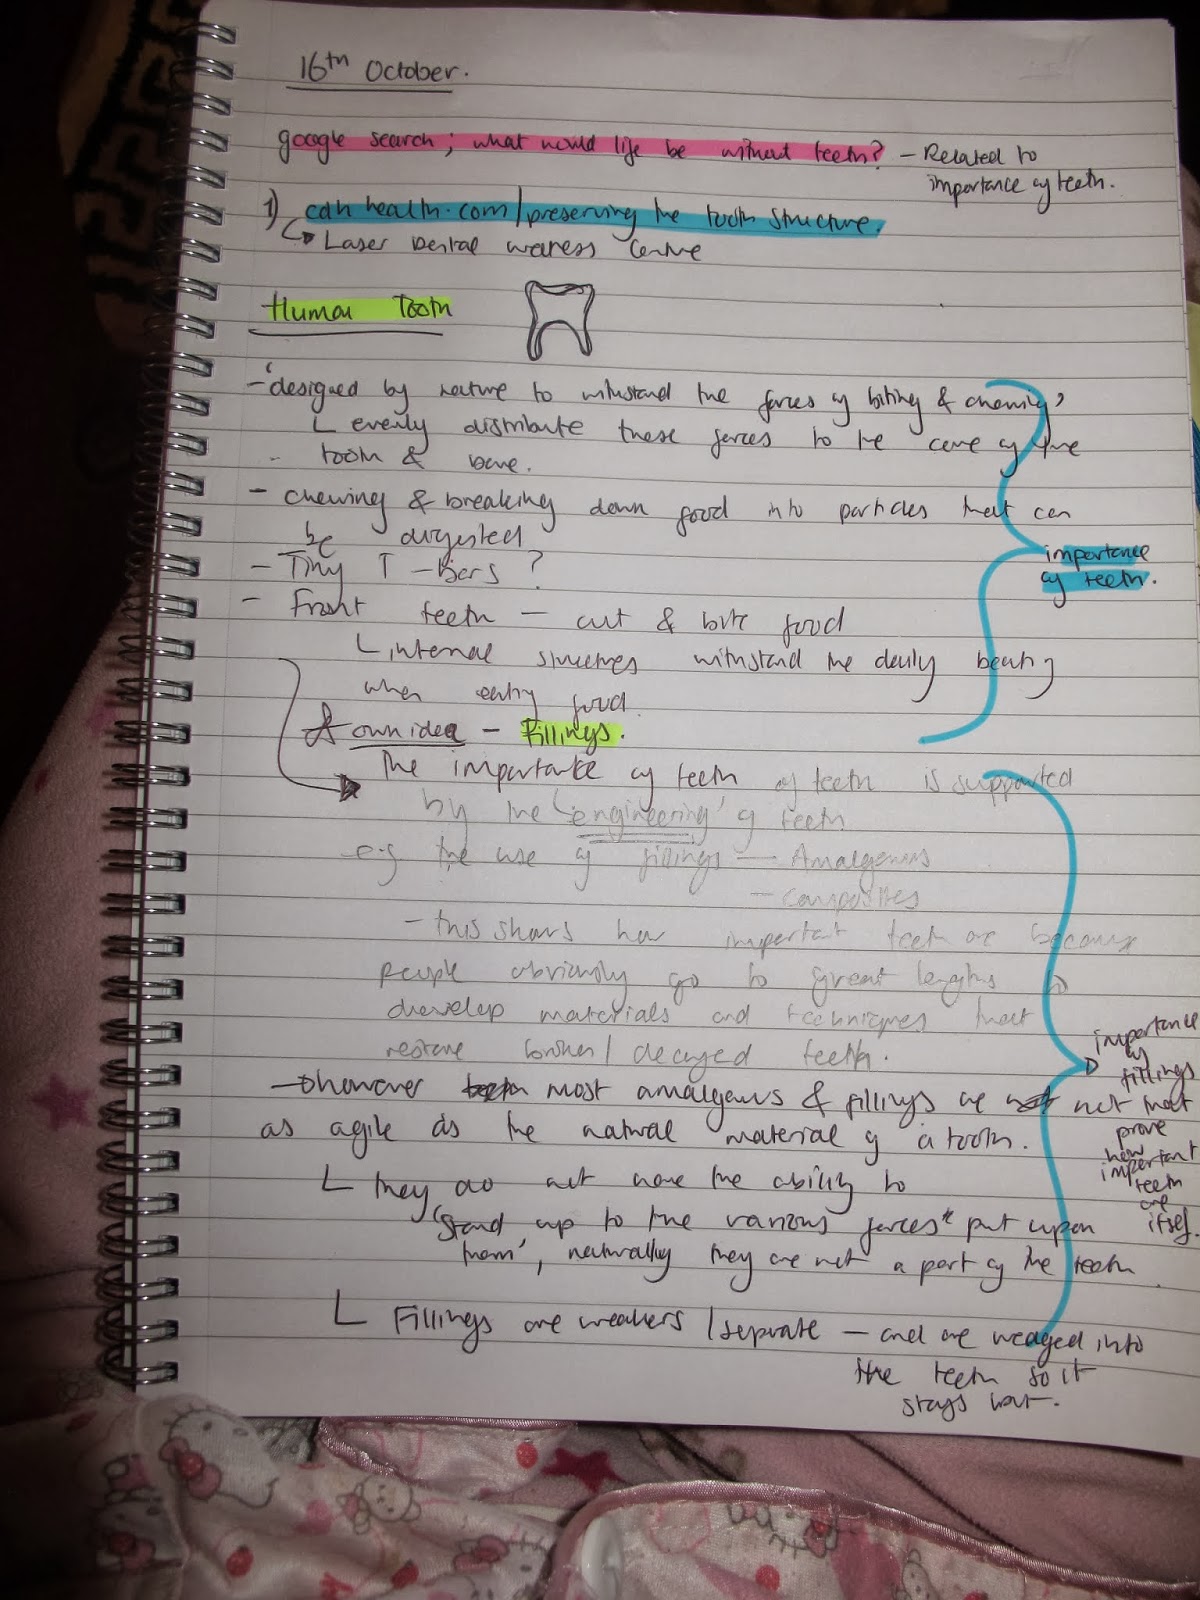 16th October.
google search; what would life be without teeth? - Related to
importance of teeth.
1) cdhhealth.com/preserving the tooth structure.
Laser Dental wellness Centre
Human Tooth
- 'designed by nature to withstand the forces of biting & chewing'
evenly distribute these forces to the core of the
tooth & bone.
- chewing & breaking down food into particles that can
be digested
- Tiny T-Bars?
- Front teeth - cut & bite food
internal structures withstand the daily beating
when eating food.
own idea - Fillings.
importance
of teeth.
The importance of teeth of teeth is supported
by the 'engineering' of teeth
e.g the use of fillings - Amalgams
- composites
- this shows how important teeth are because
people obviously go to great lengths to
develop materials and techniques that
restore broken/decayed teeth.
- however most amalgams & fillings are not
as agile as the natural material of a tooth.
they do not have the ability to
'stand up to the various forces* put upon
them', naturally they are not a part of the teeth.
Fillings are weakers / seperate - and are wedged into
the teeth so it
stays put.
importance
of
fillings
not that
prove
how
important
teeth
are
itself.